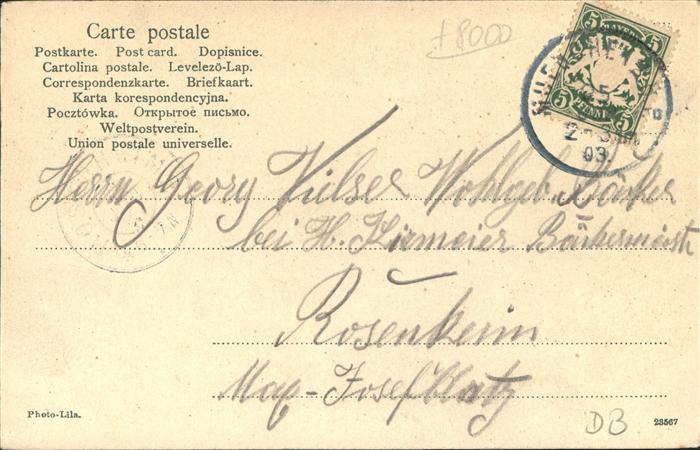 Carte postale
Postkarte. Post card. Dopisnice.
Cartolina postale. Levelező-Lap.
Correspondenzkarte. Briefkaart.
Karta korespondencyjna.
Pocztówka. Открытое письмо.
Weltpostverein.
Union postale universelle.
+8000
5 BAYERN 5
5 PFENNIG 5
MUENCHEN
03.
Herrn Georg Vilser Wohlgeb. Bäcker
bei H. Kirmeier Bäckermeistr
Rosenheim
Max-Josef Platz
Photo-Lila.
DB
23567